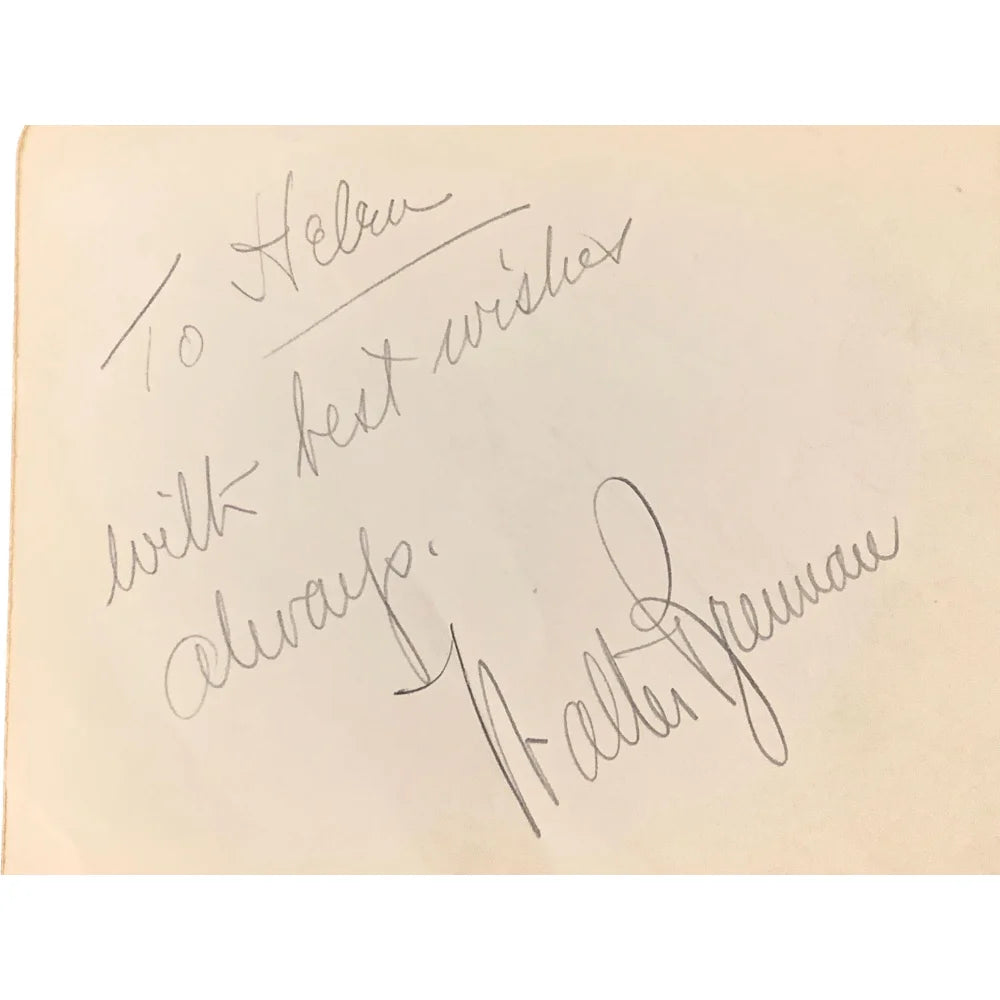 To Helen
with best wishes
always.
Walter Brennan